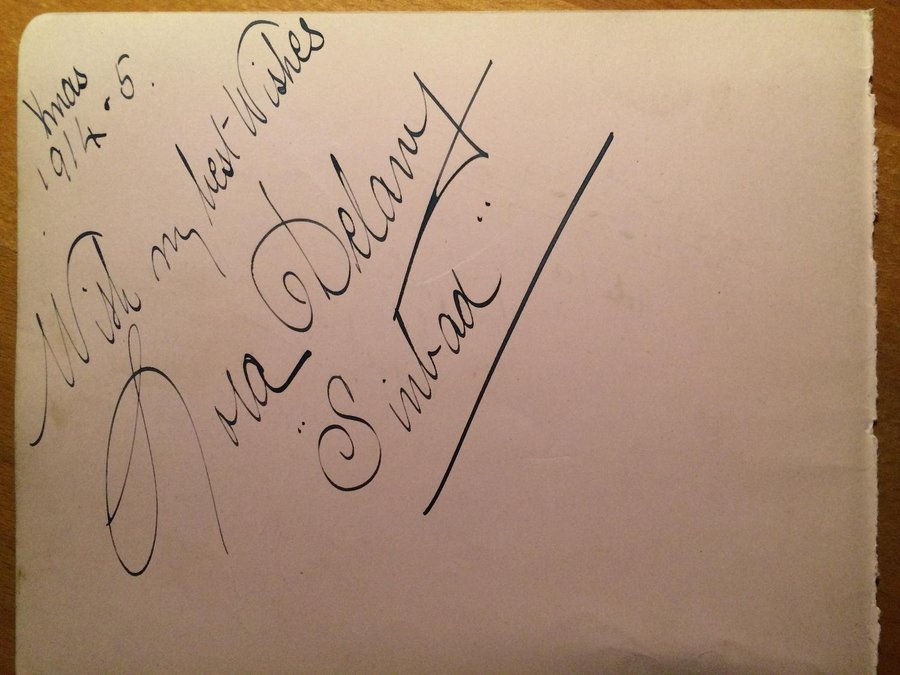 Xmas
1914-5.
With my best Wishes
Nora Delany
"Sinbad"